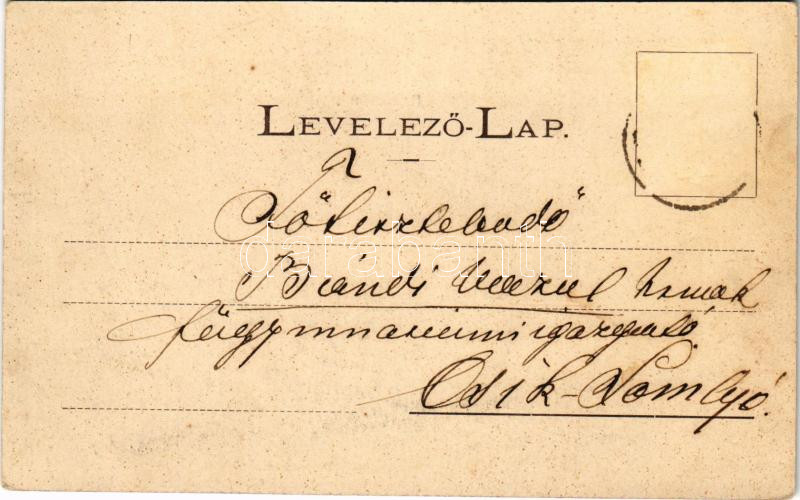 LEVELEZŐ-LAP.
Főtisztelendő
Bándi Vazul Urnak
főgymnasiumi igazgató
Csik-Somlyó.
darabanth